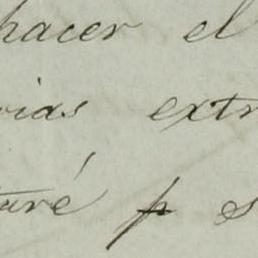 hacer el
rias extr
taré p s